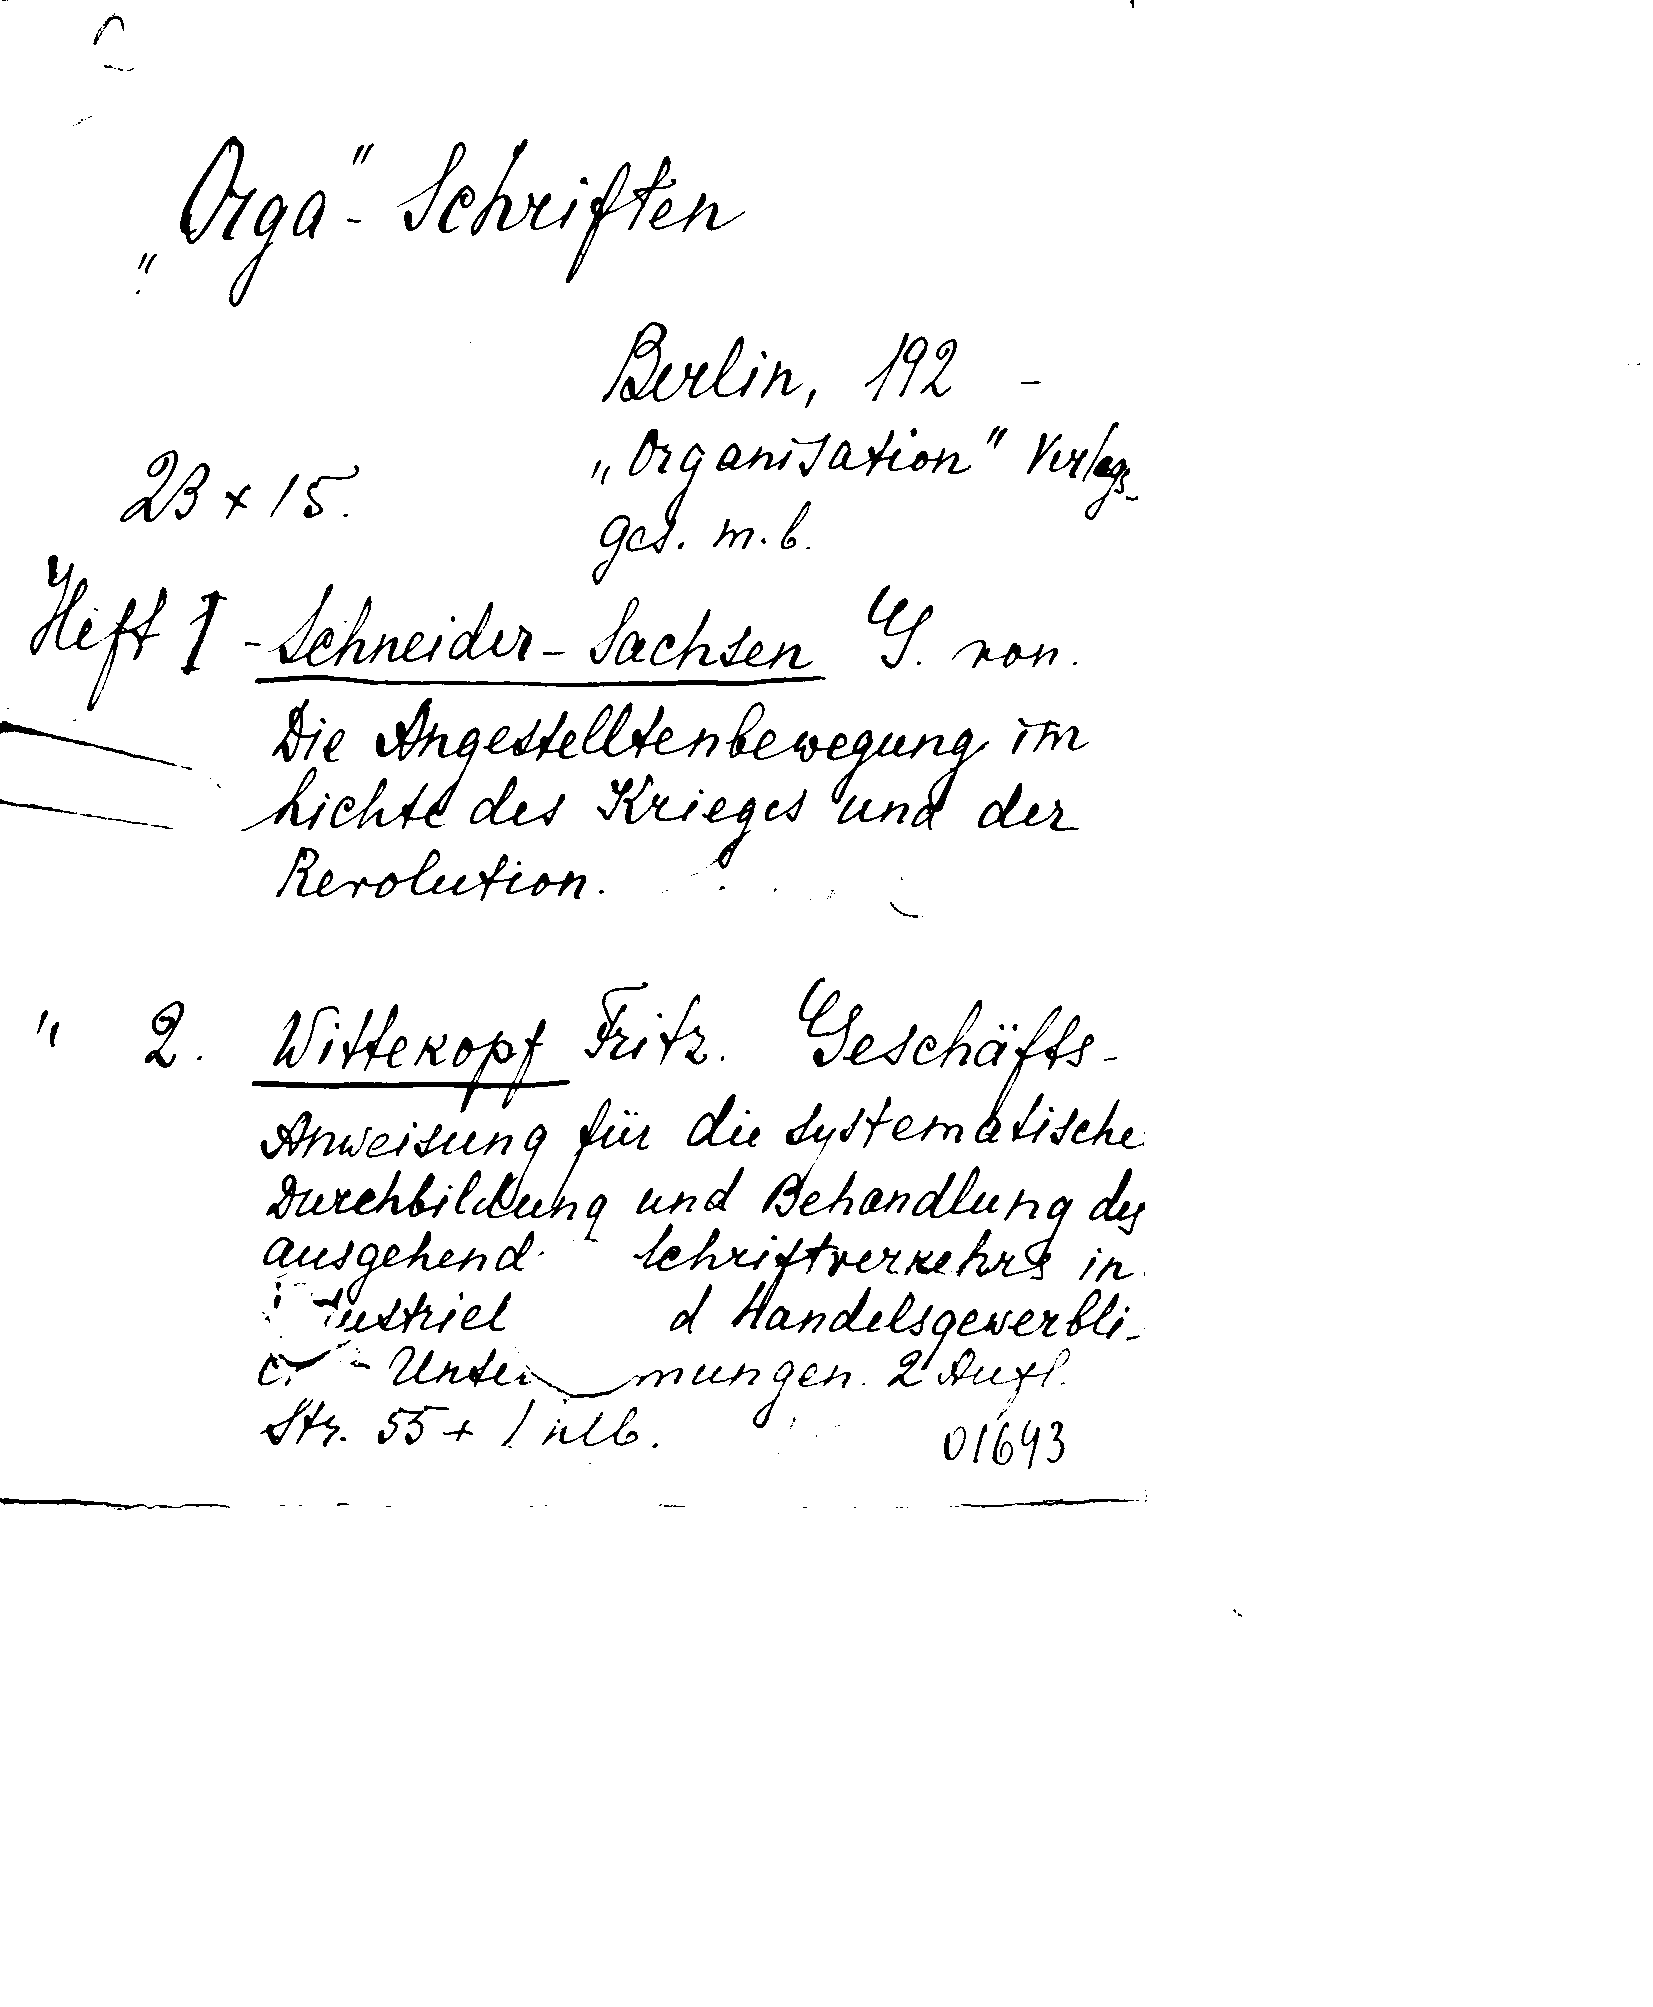 „Orga"- Schriften
Berlin, 192 -
„Organisation" Verlags-
23 x 15.
Ges. m. b.
Heft 1 - Schneider-Sachsen G. von.
Die Angestelltenbewegung im
Lichte des Krieges und der
Revolution.
" 2. Wittekopf Fritz. Geschäfts-
Anweisung für die systematische
Durchbildung und Behandlung des
ausgehend Schriftverkehrs in
ustriel d Handelsgewerbli-
Unte mungen. 2 Aufl.
Str. 55 + 1 nlb.
01643